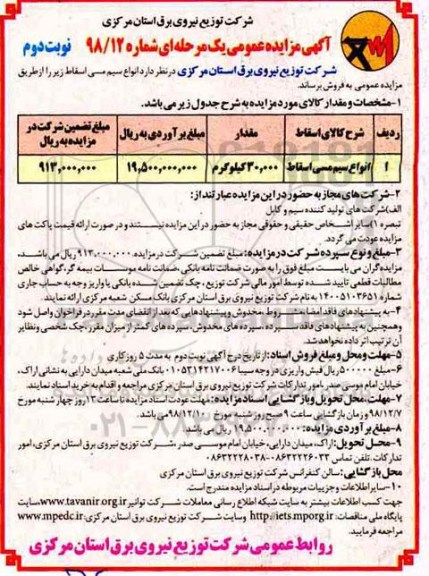 شرکت توزیع نیروی برق استان مرکزی
آگهی مزایده عمومی یک مرحله ای شماره ۹۸/۱۲ نوبت دوم
شرکت توزیع نیروی برق استان مرکزی در نظر دارد انواع سیم مسی اسقاط زیر را از طریق
مزایده عمومی به فروش برساند.
۱-مشخصات و مقدار کالای مورد مزایده به شرح جدول زیر می باشد.
ردیف شرح کالای اسقاط مقدار مبلغ برآوردی به ریال مبلغ تضمین شرکت در مزایده به ریال
۱ انواع سیم مسی اسقاط ۳۰,۰۰۰ کیلوگرم ۱۹,۵۰۰,۰۰۰,۰۰۰ ۹۱۳,۰۰۰,۰۰۰
۲-شرکت های مجاز به حضور در این مزایده عبارتند از:
الف)شرکت های تولید کننده سیم و کابل
تبصره ۱)سایر اشخاص حقیقی و حقوقی مجاز به حضور در این مزایده نیستند و در صورت ارائه قیمت پاکت های
مزایده عودت می گردد.
۳-مبلغ و نوع سپرده شرکت در مزایده: مبلغ تضمین شرکت در مزایده ۹۱۳,۰۰۰,۰۰۰ ریال می باشد،
مزایده گران می بایست مبلغ فوق را به صورت ضمانت نامه بانکی، ضمانت نامه موسسات بیمه گر، گواهی خالص
مطالبات قطعی تایید شده توسط امور مالی شرکت توزیع، چک تضمین شده بانکی یا واریز وجه به حساب جاری
شماره ۱۴۰۰۵۱۰۳۶۵۱ به نام شرکت توزیع نیروی برق استان مرکزی بانک مسکن شعبه مرکزی ارائه نمایند.
۴-به پیشنهادهای فاقد امضاء، مشروط، مخدوش و پیشنهادهایی که بعد از انقضاء مدت مقرر در فراخوان واصل شود
وهمچنین به پیشنهادهای فاقد سپرده، سپرده های مخدوش، سپرده های کمتر از میزان مقرر، چک شخصی و نظایر
آن ترتیب اثر داده نخواهد شد.
۵-مهلت و محل و مبلغ فروش اسناد: از تاریخ درج آگهی نوبت دوم به مدت ۵ روز کاری
۶-مبلغ ۵۰۰۰۰۰ ریال فیش واریزی در وجه سیبا ۰۱۰۵۳۱۴۲۱۷۰۰۶ بانک ملی شعبه میدان دارایی به نشانی اراک،
خیابان امام موسی صدر، امور تدارکات شرکت توزیع نیروی برق استان مرکزی مراجعه و اقدام به خرید اسناد نمایند.
۷-مهلت، محل تحویل و بازگشایی اسناد مزایده: مهلت عودت اسناد مزایده تا ساعت ۱۳ روز چهارشنبه مورخ
۹۸/۱۲/۷ و زمان بازگشایی ساعت ۹ صبح روز شنبه مورخ ۹۸/۱۲/۱۰ می باشد.
۸-مبلغ برآوردی مزایده: ۱۹,۵۰۰,۰۰۰,۰۰۰ ریال می باشد.
۹-محل تحویل: اراک، میدان دارایی، خیابان امام موسی صدر، شرکت توزیع نیروی برق استان مرکزی، امور
تدارکات. تلفن تماس ۰۸۶۳۲۲۲۶۰۳۳-۰۸۶۳۲۲۲۸۰۳۸
محل بازگشایی: سالن کنفرانس شرکت توزیع نیروی برق استان مرکزی
۱۰-سایر اطلاعات و جزییات مربوطه در اسناد مزایده مندرج است.
جهت کسب اطلاعات بیشتر به سایت شبکه اطلاع رسانی معاملات شرکت توانیر www.tavanir.org.ir سایت
پایگاه ملی مناقصات: http://iets.mporg.ir وسایت شرکت توزیع نیروی برق استان مرکزی: www.mpedc.ir
مراجعه فرمایید.
روابط عمومی شرکت توزیع نیروی برق استان مرکزی